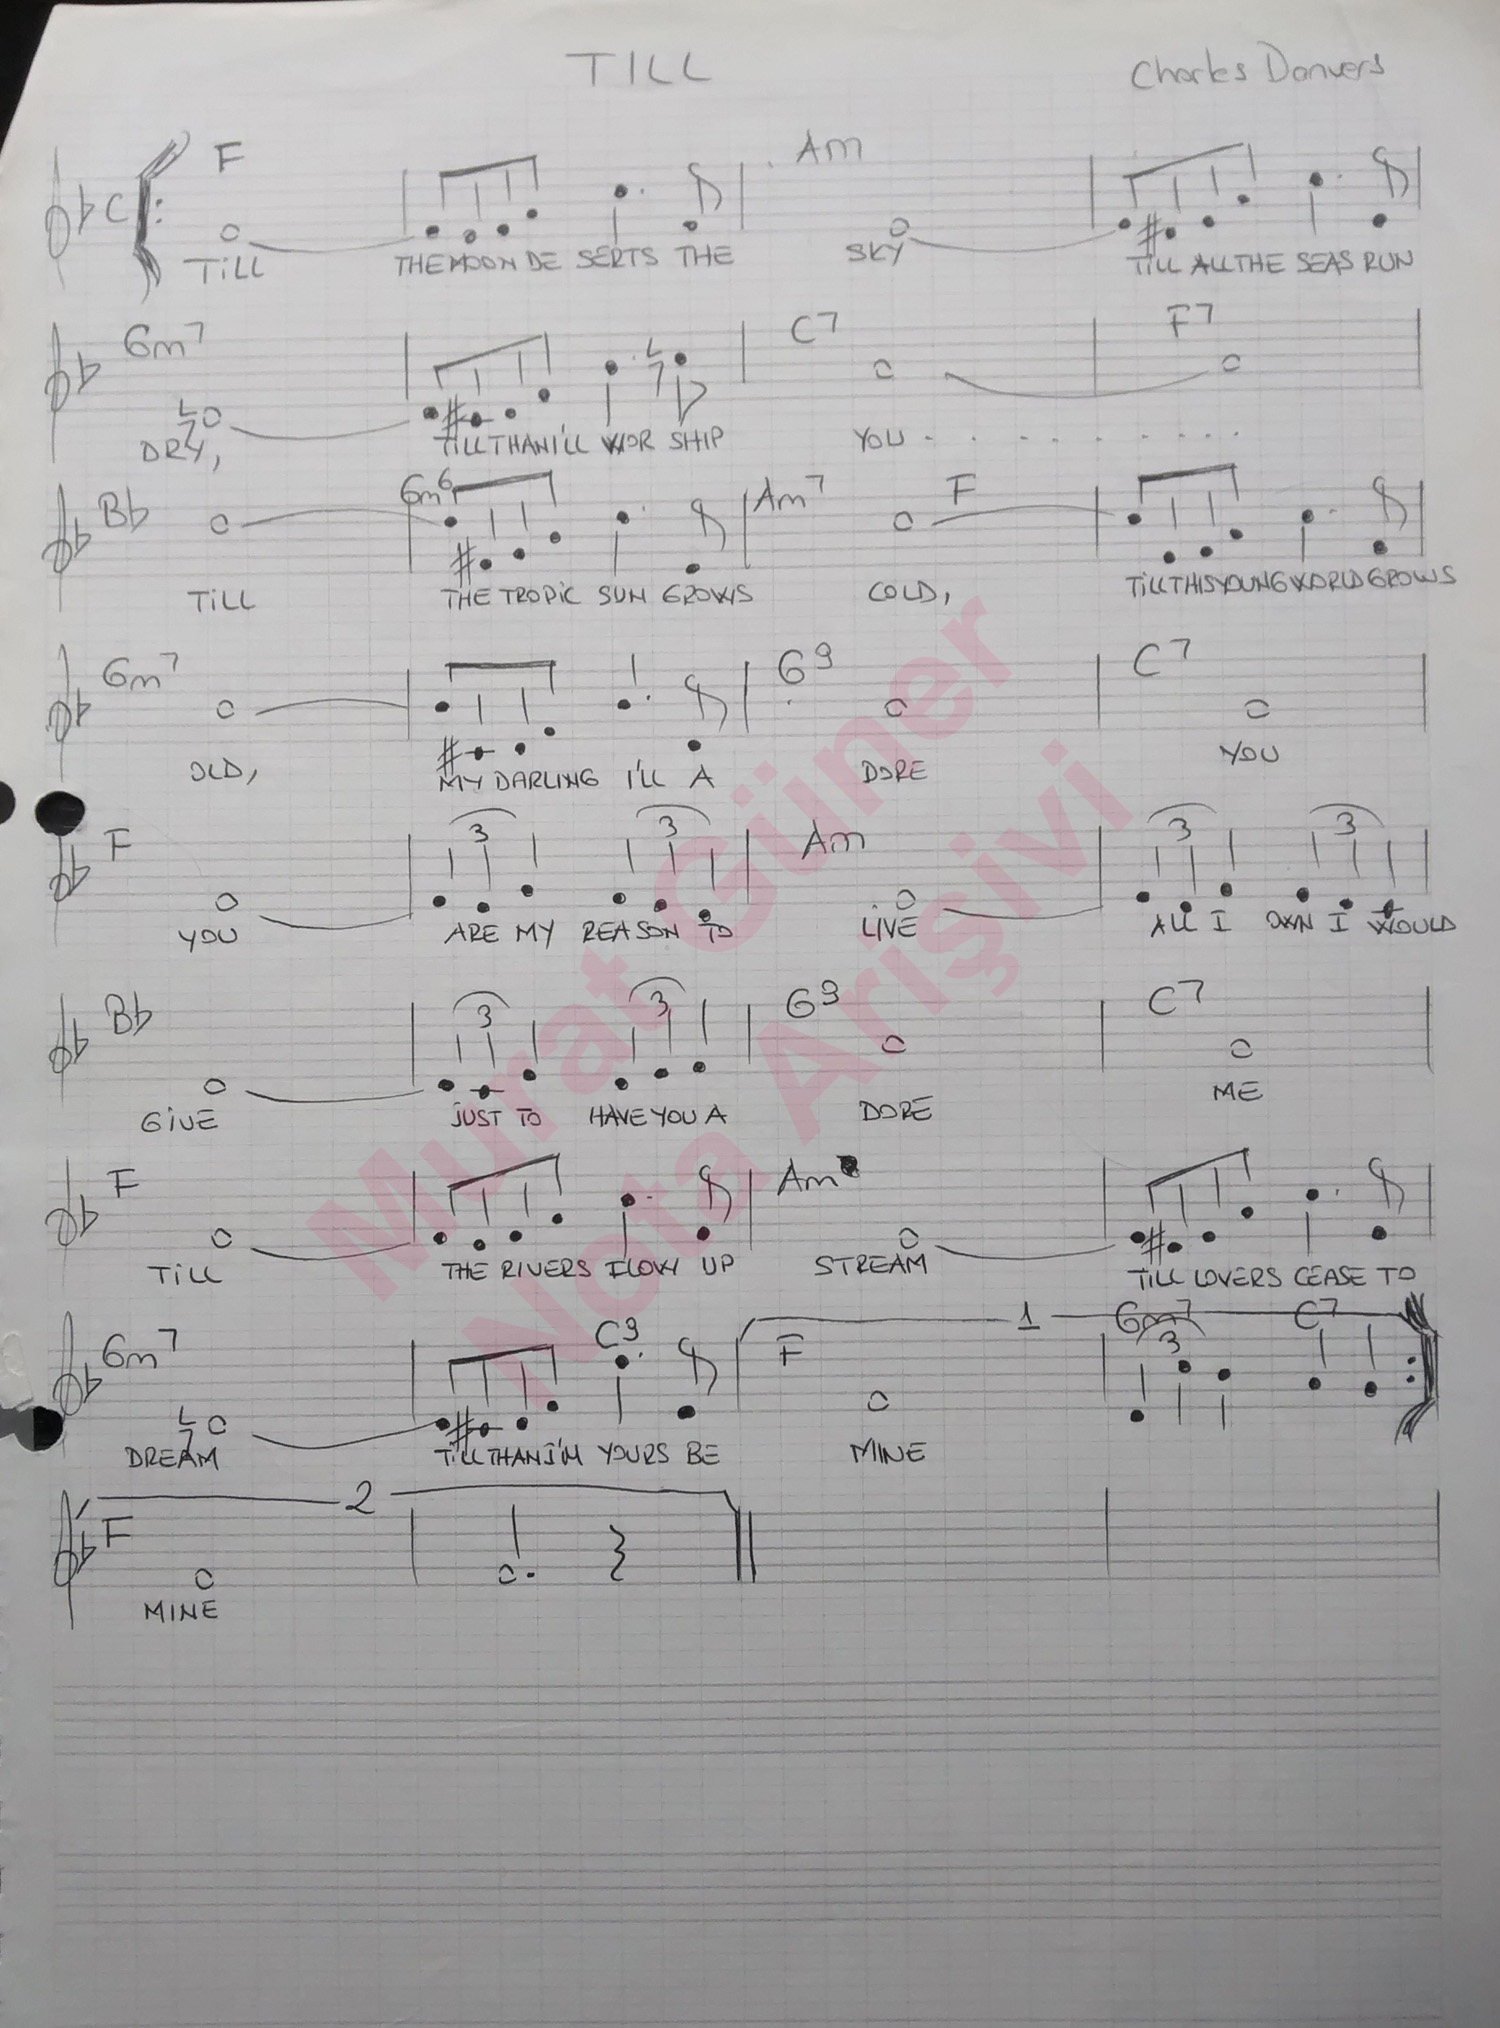 TILL
Charles Danvers
F Am
TILL THE MOON DE SERTS THE SKY TILL ALL THE SEAS RUN
Gm7 C7 F7
DRY, TILL THAN I'LL WOR SHIP YOU . . . . . . . .
Bb Gm6 Am7 F
TILL THE TROPIC SUN GROWS COLD, TILL THIS YOUNG WORLD GROWS
Gm7 G9 C7
OLD, MY DARLING I'LL A DORE YOU
F 3 3 Am 3 3
YOU ARE MY REASON TO LIVE ALL I OWN I WOULD
Bb 3 3 G9 C7
GIVE JUST TO HAVE YOU A DORE ME
F Am
TILL THE RIVERS FLOW UP STREAM TILL LOVERS CEASE TO
Gm7 C9 F 1 Gm7 3 C7
DREAM TILL THAN I'M YOURS BE MINE
2
F
MINE
Murat Güner
Nota Arişivi